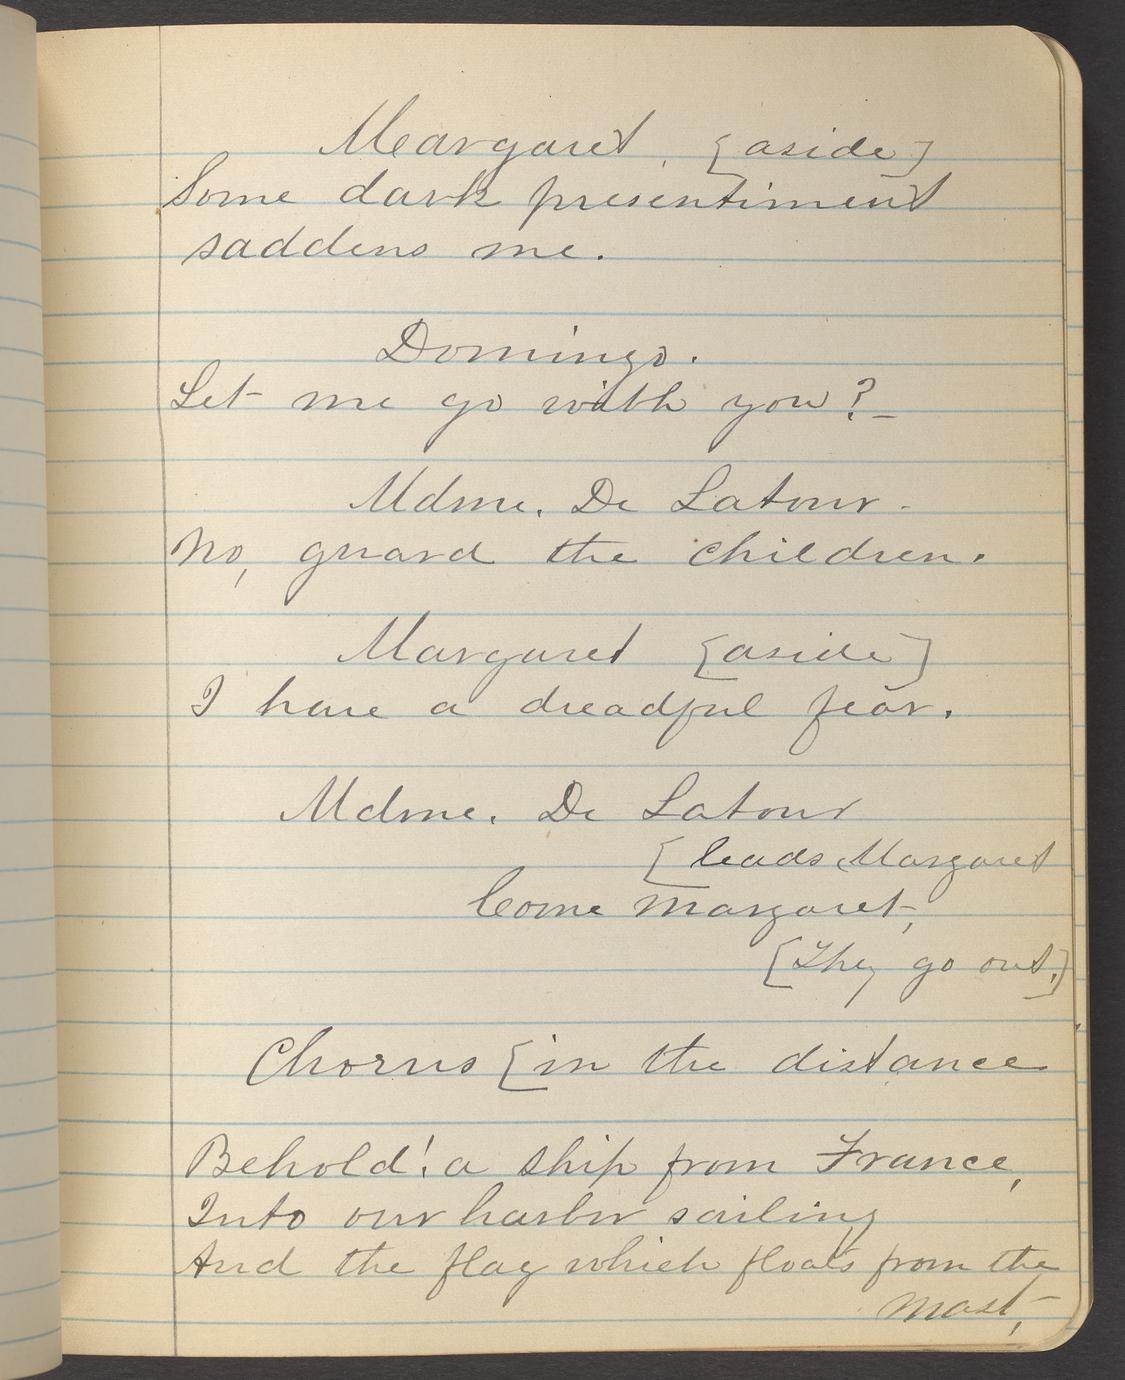 Margaret. [aside]
Some dark presentiment
saddens me.
Domingo.
Let me go with you?_
Mdme. De Latour.
No, guard the children.
Margaret [aside]
I have a dreadful fear.
Mdme. De Latour
[leads Margaret
Come Margaret,
[They go out.]
Chorus [in the distance
Behold! a ship from France,
Into our harbor sailing
And the flag which floats from the
mast,-